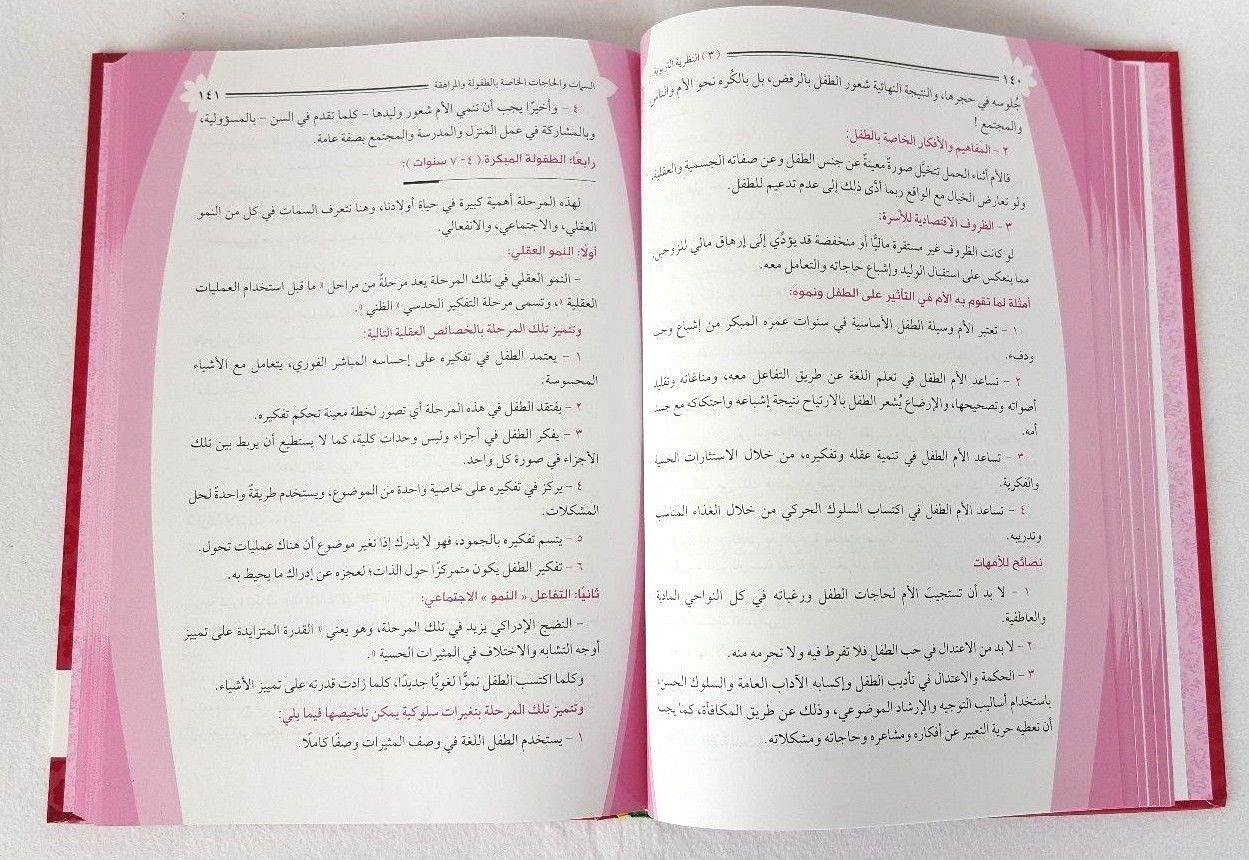 ١٤٠ (٣) النظرية التربوية
جُلوسه في حجرها، والنتيجة النهائية شعور الطفل بالرفض، بل بالكُره نحو الأم والناس
والمجتمع !
٢ - المفاهيم والأفكار الخاصة بالطفل:
فالأم أثناء الحمل تتخيَّل صورةً معينةً عن جنس الطفل وعن صفاته الجسمية والعقلية،
ولو تعارض الخيال مع الواقع ربما أدَّى ذلك إلى عدم تدعيم للطفل.
٣ - الظروف الاقتصادية للأسرة:
لو كانت الظروف غير مستقرة ماليًّا أو منخفضة قد يؤدِّي إلى إرهاق مالي للزوجين
مما ينعكس على استقبال الوليد وإشباع حاجاته والتعامل معه.
أمثلة لما تقوم به الأم في التأثير على الطفل ونموه:
١ - تعتبر الأم وسيلة الطفل الأساسية في سنوات عمره المبكر من إشباع وحب
ودفء.
٢ - تساعد الأم الطفل في تعلم اللغة عن طريق التفاعل معه، ومناغاته وتقليد
أصواته وتصحيحها، والإرضاع يُشعر الطفل بالارتياح نتيجة إشباعه واحتكاكه مع جسد
أمه.
٣ - تساعد الأم الطفل في تنمية عقله وتفكيره، من خلال الاستثارات الحسية
والفكرية.
٤ - تساعد الأم الطفل في اكتساب السلوك الحركي من خلال الغذاء المناسب
وتدريبه.
نصائح للأمهات
١ - لا بد أن تستجيبَ الأم لحاجات الطفل ورغباته في كل النواحي المادية
والعاطفية.
٢ - لا بد من الاعتدال في حب الطفل فلا تفرط فيه ولا تحرمه منه.
٣ - الحكمة والاعتدال في تأديب الطفل وإكسابه الآداب العامة والسلوك الحسن،
باستخدام أساليب التوجيه والإرشاد الموضوعي، وذلك عن طريق المكافأة، كما يجب
أن تعطيه حرية التعبير عن أفكاره ومشاعره وحاجاته ومشكلاته.
السمات والحاجات الخاصة بالطفولة والمراهقة ١٤١
٤ - وأخيرًا يجب أن تنمي الأم شعور وليدها - كلما تقدم في السن - بالمسؤولية،
وبالمشاركة في عمل المنزل والمدرسة والمجتمع بصفة عامة.
رابعًا: الطفولة المبكرة (٤- ٧ سنوات ):
لهذه المرحلة أهمية كبيرة في حياة أولادنا، وهنا نتعرف السمات في كل من النمو
العقلي، والاجتماعي، والانفعالي.
أولًا: النمو العقلي:
- النمو العقلي في تلك المرحلة يعد مرحلةً من مراحل « ما قبل استخدام العمليات
العقلية »، وتسمى مرحلة التفكير الحدسي « الظني ».
وتتميز تلك المرحلة بالخصائص العقلية التالية:
١ - يعتمد الطفل في تفكيره على إحساسه المباشر الفوري، يتعامل مع الأشياء
المحسوسة.
٢ - يفتقد الطفل في هذه المرحلة أي تصور لخطة معينة تحكم تفكيره.
٣ - يفكر الطفل في أجزاء وليس وحدات كلية، كما لا يستطيع أن يربط بين تلك
الأجزاء في صورة كل واحد.
٤ - يركز في تفكيره على خاصية واحدة من الموضوع، ويستخدم طريقةً واحدةً لحل
المشكلات.
٥ - يتسم تفكيره بالجمود، فهو لا يدرك إذا تغير موضوع أن هناك عمليات تحول.
٦ - تفكير الطفل يكون متمركزًا حول الذات؛ لعجزه عن إدراك ما يحيط به.
ثانيًا: التفاعل « النمو » الاجتماعي:
- النضج الإدراكي يزيد في تلك المرحلة، وهو يعني « القدرة المتزايدة على تمييز
أوجه التشابه والاختلاف في المثيرات الحسية ».
وكلما اكتسب الطفل نموًّا لغويًّا جديدًا، كلما زادت قدرته على تمييز الأشياء.
وتتميز تلك المرحلة بتغيرات سلوكية يمكن تلخيصها فيما يلي:
١ - يستخدم الطفل اللغة في وصف المثيرات وصفًا كاملًا.